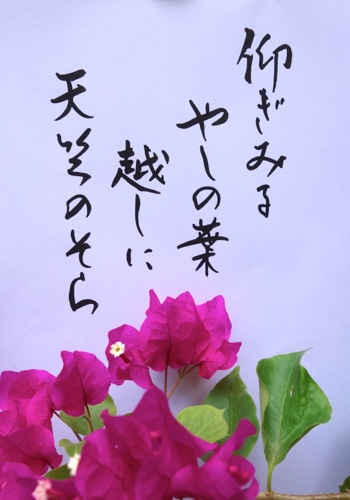 仰ぎみる
やしの葉
越しに
天笑のそら